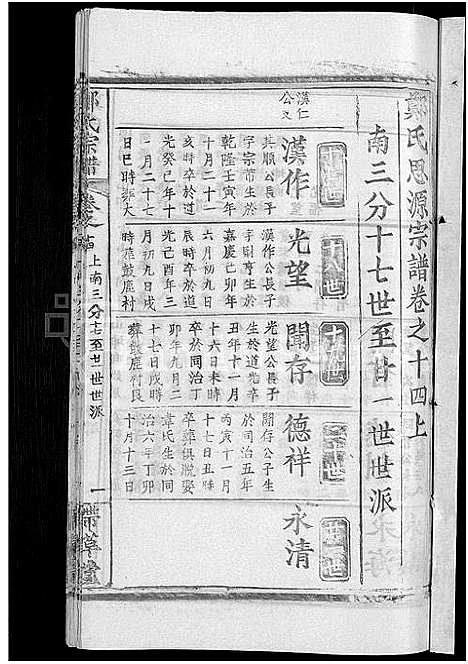 鄭氏思源宗譜卷之十四上
南三分十七世至廿一世世派
十七世
十八世
十九世
二十世
廿一世
漢仁公文
漢作
其順公長子
字宗莆生於
乾隆壬寅年
十月二十一
亥時卒於道
光癸巳年十
一月二十七
日巳時葬大
光望
漢作公長子
字財亨生於
嘉慶己卯年
六月初九日
卒於道
光己酉年三
月初九日戌
時葬鼓鹿村
聞存
光望公長子
生於道光辛
丑年十一月
十六日未時
卒於同治丁
卯年九月二
十七日戌時
葬鼓鹿村艮
德祥
聞存公子生
於同治五年
丙寅十一月
十七日丑時
卒葬俱脫娶
韋氏生於同
治六年丁卯
十月十三日
永清
鄭氏宗譜
卷之十四上南三分十七至廿一世世派
一
帶草堂